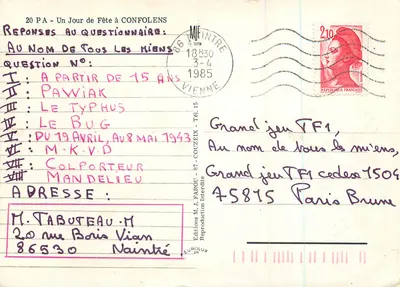 20 P A - Un Jour de Fête à CONFOLENS
REPONSES AU QUESTIONNAIRE:
AU NOM DE TOUS LES MIENS
QUESTION N°:
I : A PARTIR DE 15 ANS
II : PAWIAK
III : LE TYPHUS
IV : LE BUG
V : DU 19 AVRIL, AU 8 MAI 1943
VI : M.K.V.D
VII : COLPORTEUR
VIII : MANDELIEU
ADRESSE :
M. TABUTEAU.M
20 rue Boris Vian
86530 Naintré
Editions M. J. FABOU - 87 - COUZEIX - Tél. 15
Reproduction Interdite
86 NAINTRE
18H30
3-4
1985
VIENNE
2,10
Grand jeu TF1,
Au nom de tous les miens,
Grand jeu TF1 cedex 1504
75815 Paris Brune